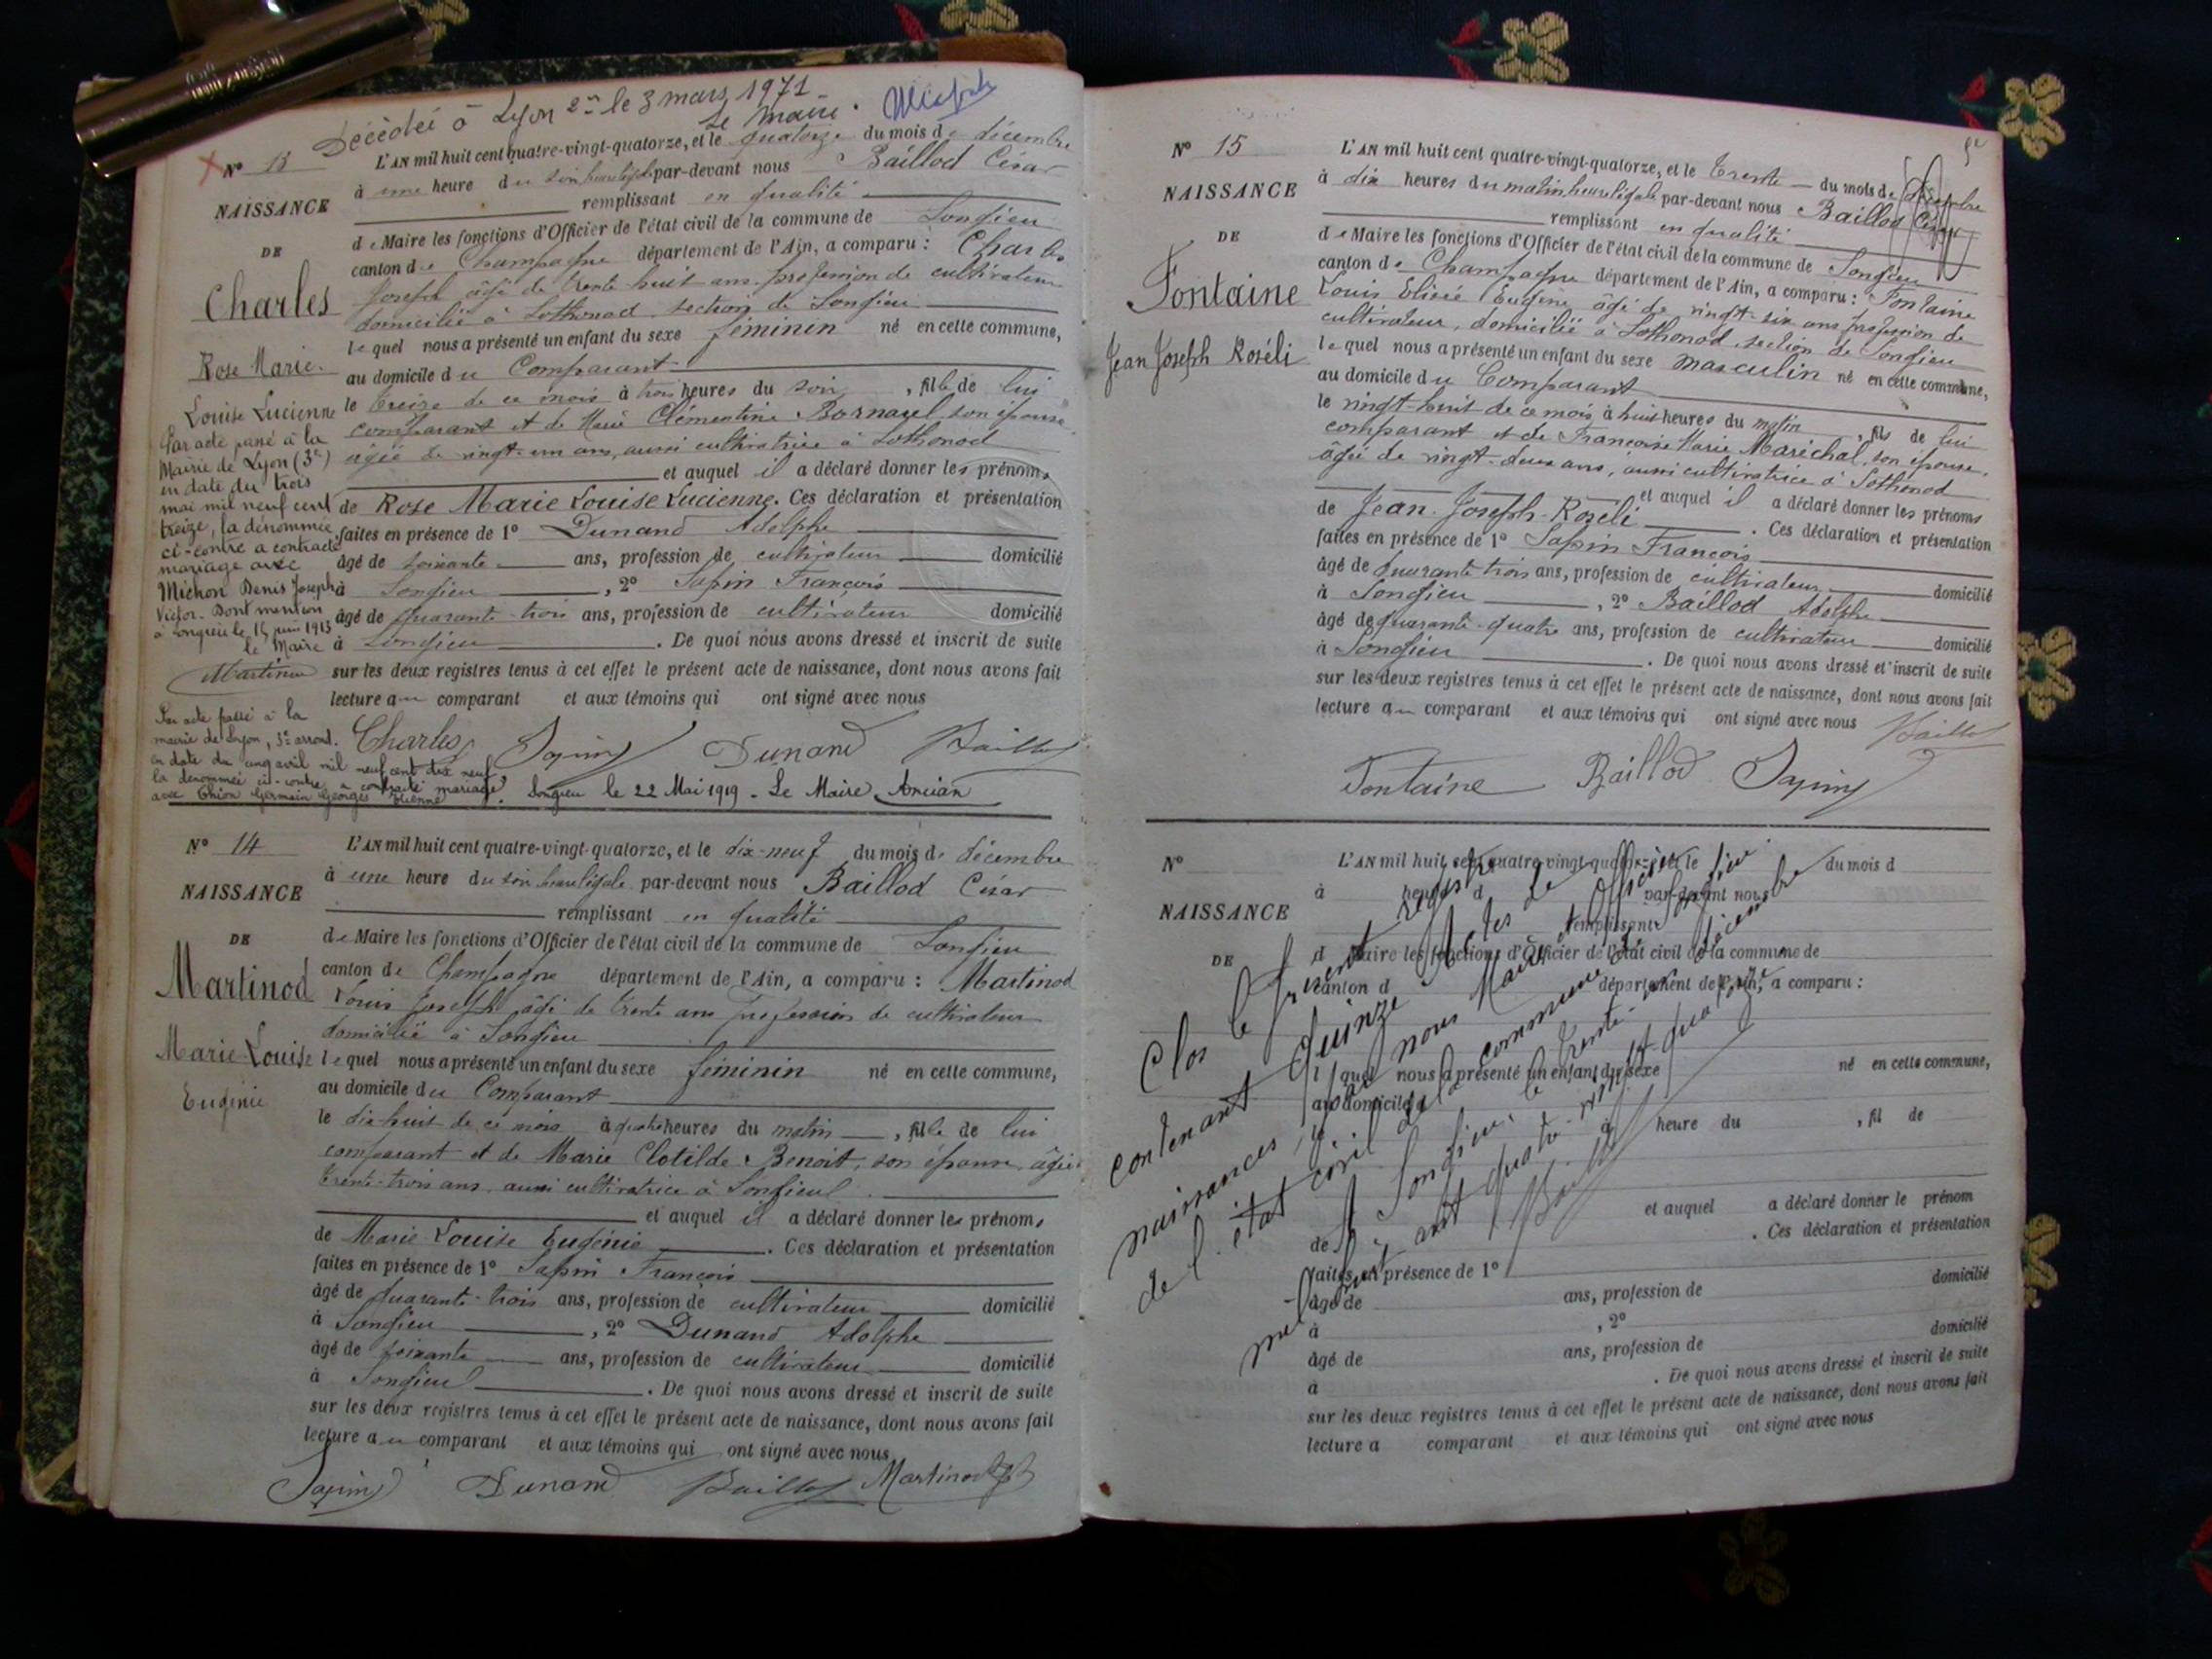 Décédée à Lyon 2e le 3 mars 1971
Le Maire.
N° 13
NAISSANCE
DE
Charles
Rose Marie.
Louise Lucienne
Par acte passé à la
Mairie de Lyon (3e)
en date du trois
mai mil neuf cent
treize, la dénommée
ci-contre a contracté
mariage avec
Michon Denis Joseph
Victor. Dont mention
à Songieu le 15 juin 1913
le Maire
Martinod
Par acte passé à la
mairie de Lyon, 3e arrond.
en date du cinq avril mil neuf cent dix neuf
la dénommée ci-contre a contracté mariage
avec Thion Germain Georges Etienne. Songieu le 22 Mai 1919 - Le Maire Ancian
L'AN mil huit cent quatre-vingt-quatorze, et le quatorze du mois de décembre
à une heure du soir heure légale par-devant nous Baillod César
remplissant en qualité
de Maire les fonctions d'Officier de l'état civil de la commune de Songieu
canton de Champagne département de l'Ain, a comparu : Charles
Joseph âgé de trente huit ans profession de cultivateur
domicilié à Sothonod section de Songieu
lequel nous a présenté un enfant du sexe féminin né en cette commune,
au domicile du Comparant
le treize de ce mois à trois heures du soir, fille de lui
comparant et de Marie Clémentine Bornarel son épouse
agée de vingt-un ans, aussi cultivatrice à Sothonod
et auquel il a déclaré donner les prénoms
de Rose Marie Louise Lucienne. Ces déclaration et présentation
faites en présence de 1° Dunand Adolphe
âgé de soixante ans, profession de cultivateur domicilié
à Songieu, 2° Sapin François
âgé de quarante-trois ans, profession de cultivateur domicilié
à Songieu. De quoi nous avons dressé et inscrit de suite
sur les deux registres tenus à cet effet le présent acte de naissance, dont nous avons fait
lecture au comparant et aux témoins qui ont signé avec nous
Charles Sapin Dunand Baillod
N° 14
NAISSANCE
DE
Martinod
Marie Louise
Eugénie
L'AN mil huit cent quatre-vingt-quatorze, et le dix-neuf du mois de décembre
à une heure du soir heure légale par-devant nous Baillod César
remplissant en qualité
de Maire les fonctions d'Officier de l'état civil de la commune de Songieu
canton de Champagne département de l'Ain, a comparu : Martinod
Louis Joseph âgé de trente ans profession de cultivateur
domicilié à Songieu
lequel nous a présenté un enfant du sexe féminin né en cette commune,
au domicile du Comparant
le dix huit de ce mois à quatre heures du matin, fille de lui
comparant et de Marie Clotilde Benoit, son épouse, âgée
trente-trois ans, aussi cultivatrice à Songieu
et auquel il a déclaré donner les prénoms
de Marie Louise Eugénie. Ces déclaration et présentation
faites en présence de 1° Sapin François
âgé de quarante-trois ans, profession de cultivateur domicilié
à Songieu, 2° Dunand Adolphe
âgé de soixante ans, profession de cultivateur domicilié
à Songieu. De quoi nous avons dressé et inscrit de suite
sur les deux registres tenus à cet effet le présent acte de naissance, dont nous avons fait
lecture au comparant et aux témoins qui ont signé avec nous
Sapin Dunand Baillod Martinod
N° 15
NAISSANCE
DE
Fontaine
Jean Joseph Roséli
L'AN mil huit cent quatre-vingt-quatorze, et le trente du mois de décembre
à dix heures du matin heure légale par-devant nous Baillod César
remplissant en qualité
de Maire les fonctions d'Officier de l'état civil de la commune de Songieu
canton de Champagne département de l'Ain, a comparu : Fontaine
Louis Elisée Eugène âgé de vingt-six ans profession de
cultivateur, domicilié à Sothonod, section de Songieu
lequel nous a présenté un enfant du sexe masculin né en cette commune,
au domicile du Comparant
le vingt-huit de ce mois à huit heures du matin, fils de lui
comparant et de Françoise Marie Maréchal, son épouse,
âgée de vingt-deux ans, aussi cultivatrice à Sothonod
et auquel il a déclaré donner les prénoms
de Jean-Joseph-Roséli. Ces déclaration et présentation
faites en présence de 1° Sapin François
âgé de quarante trois ans, profession de cultivateur domicilié
à Songieu, 2° Baillod Adolphe
âgé de quarante-quatre ans, profession de cultivateur domicilié
à Songieu. De quoi nous avons dressé et inscrit de suite
sur les deux registres tenus à cet effet le présent acte de naissance, dont nous avons fait
lecture au comparant et aux témoins qui ont signé avec nous Baillod
Fontaine Baillod Sapin
N°
NAISSANCE
DE
L'AN mil huit cent quatre-vingt-quatorze, et le du mois d
à heure d par-devant nous
remplissant
d Maire les fonctions d'Officier de l'état civil de la commune de
canton d département de l'Ain, a comparu :
lequel nous a présenté un enfant du sexe né en cette commune,
au domicile d
à heure du , fil de
et auquel a déclaré donner le prénom
de . Ces déclaration et présentation
faites en présence de 1°
âgé de ans, profession de domicilié
à , 2°
âgé de ans, profession de domicilié
à . De quoi nous avons dressé et inscrit de suite
sur les deux registres tenus à cet effet le présent acte de naissance, dont nous avons fait
lecture a comparant et aux témoins qui ont signé avec nous
Clos le présent registre
contenant quinze Actes de
naissances, par nous Maire et Officier
de l'état civil de la commune de Songieu
A Songieu, le trente-un décembre
mil huit cent quatre-vingt-quatorze
Baillod